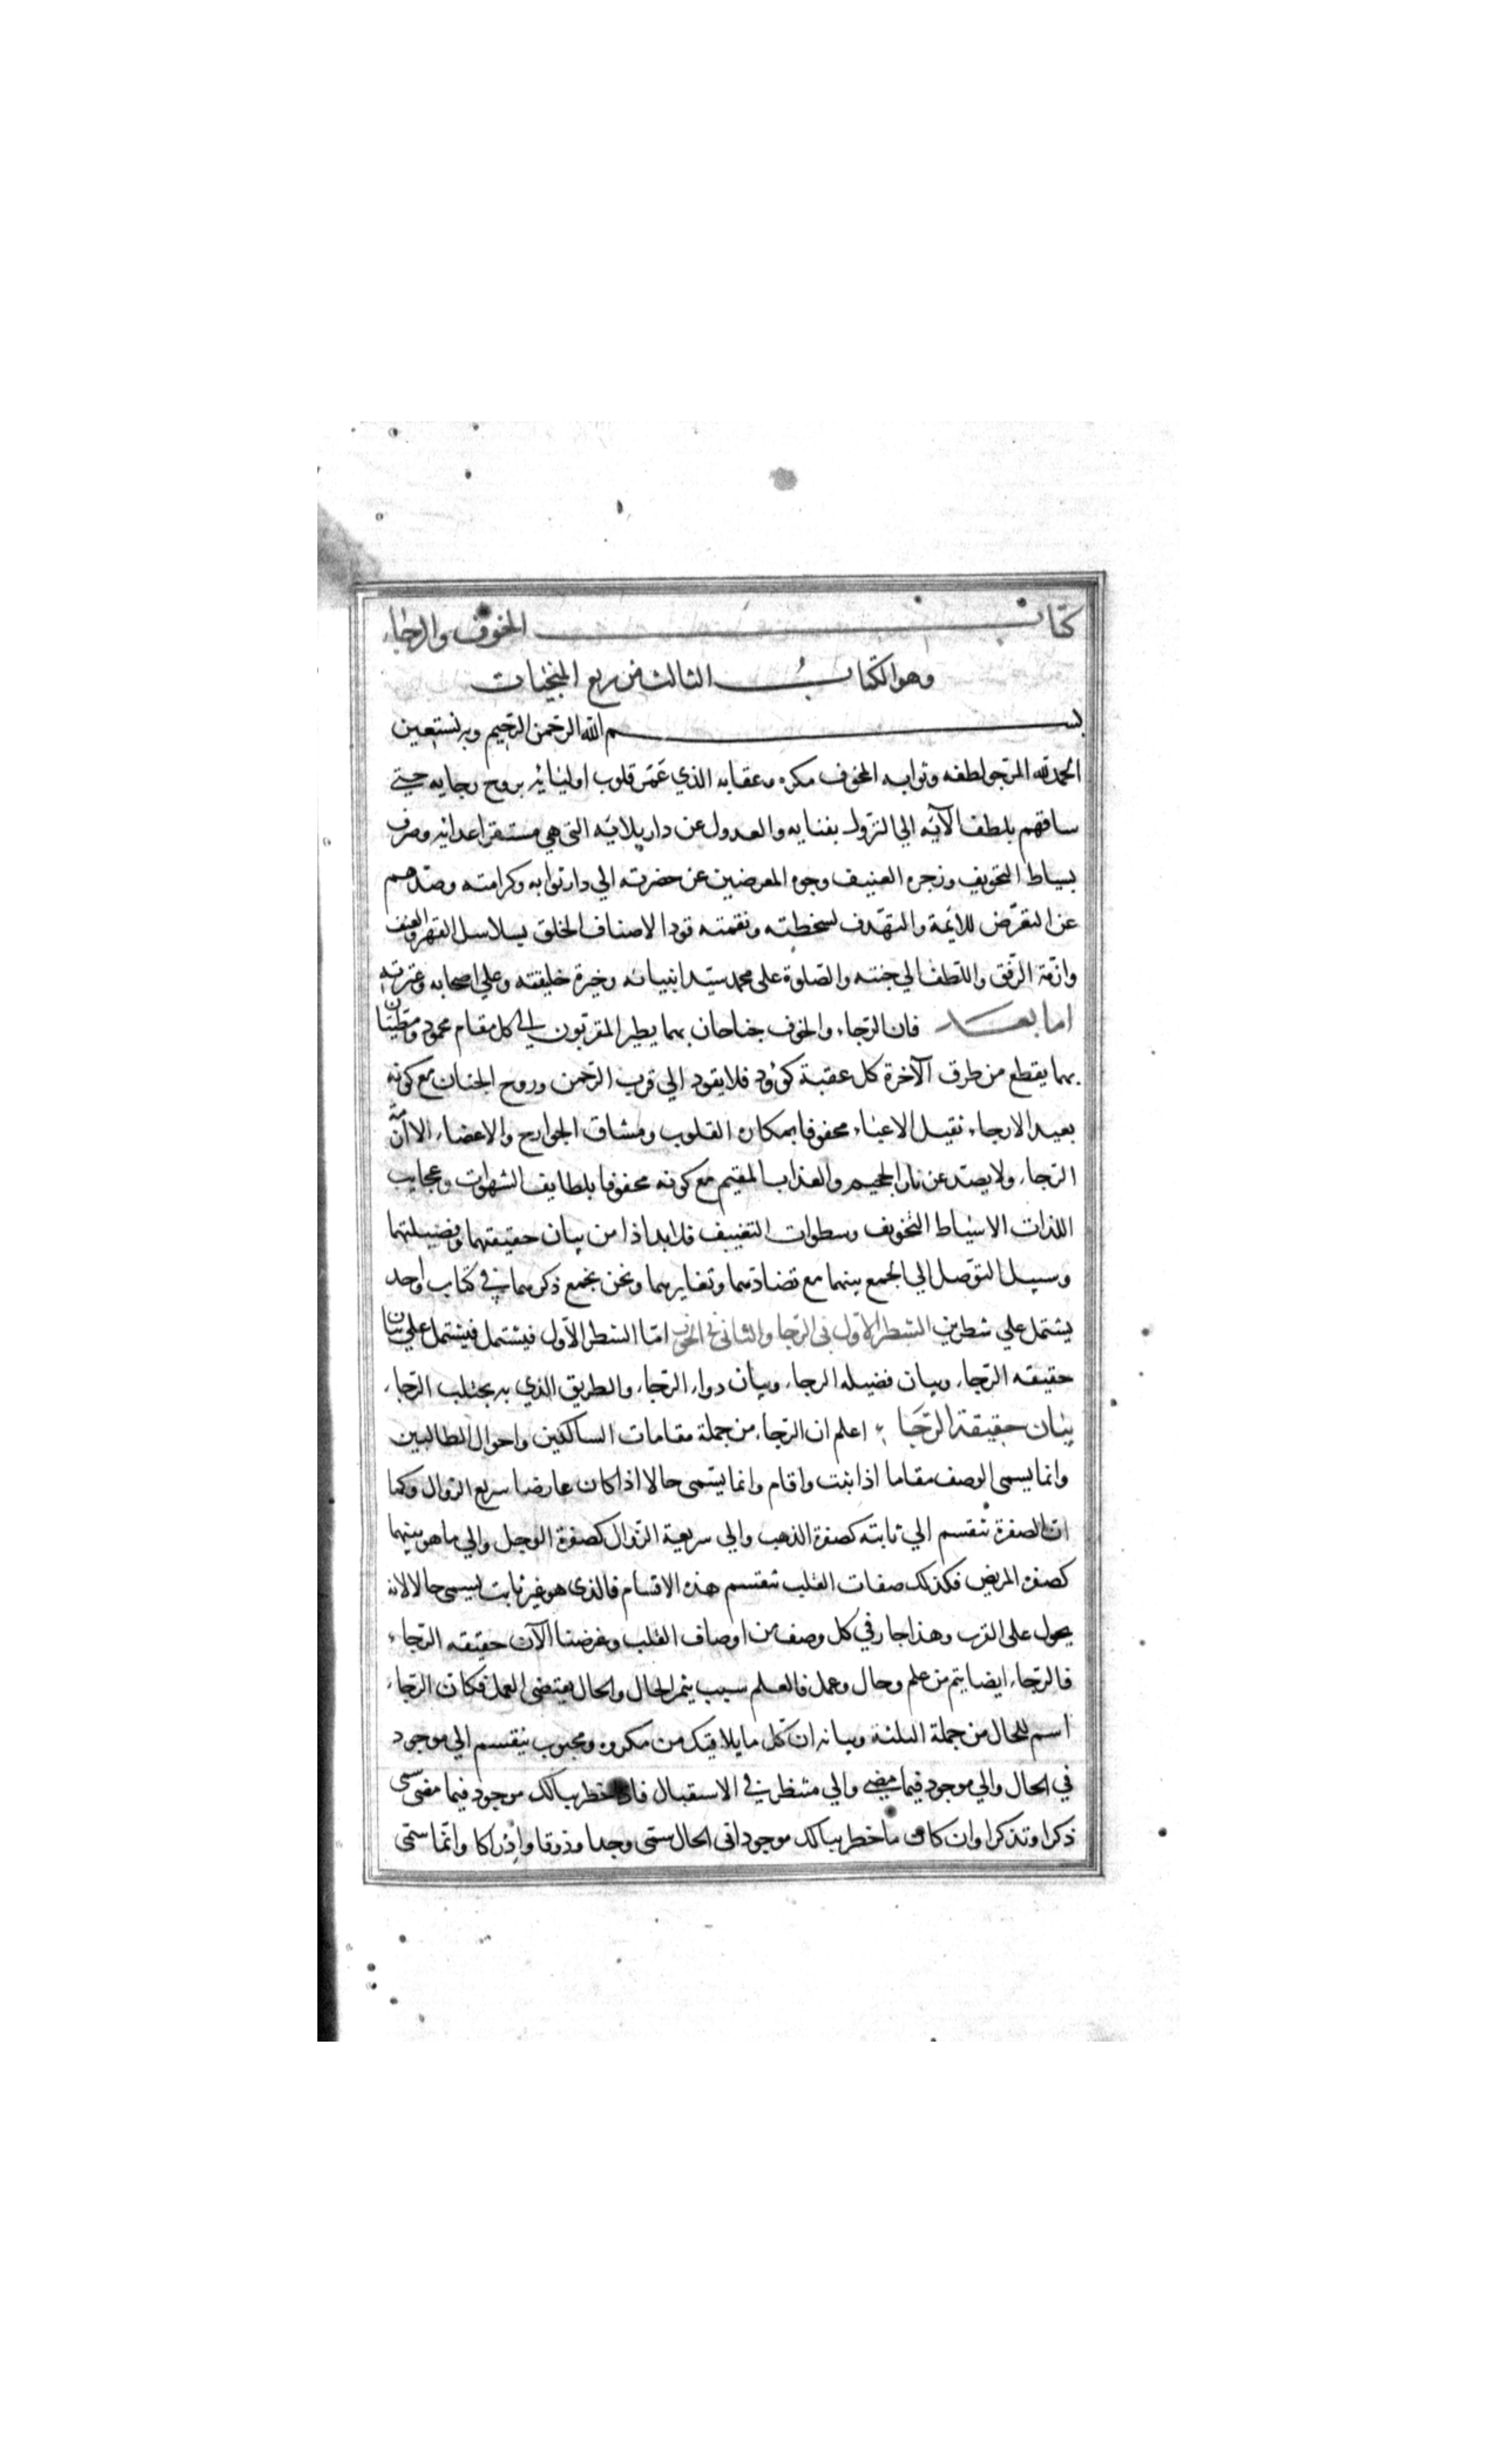 كتاب الخوف والرجاء
وهو الكتاب الثالث من ربع المنجيات
بسم الله الرحمن الرحيم وبه نستعين
الحمد لله المرجو لطفه وثوابه المخوف مكره وعقابه الذي عَمّر قلوب اوليائه بروح رجايه حتي
ساقهم بلطف الآيه الي النزول بفنايه والعدول عن دار بلايه التي هي مستقر اعدائه وصرف
بسياط التخويف وزجره العنيف وجوه المعرضين عن حضرته الي دار ثوابه وكرامته وصدّهم
عن التعرّض للائمة والتهدّف لسخطه ونقمته قودا لاصناف الخلق بسلاسل القهر والعنف
وازمّة الرّفق واللطف الي جنته والصّلوة على محمد سيّد انبيائه وخيرة خليقته وعلي اصحابه وعترته
اما بعد فان الرّجاء والخوف جناحان بهما يطير المقربون الي كل مقام محمود ومطيّتان
بهما يقطع من طرق الآخرة كل عقبة كؤود فلا يقود الي قرب الرّحمن وروح الجنان مع كونه
بعيد الارجاء ثقيل الاعباء محفوفا بمكاره القلوب ومشاق الجوارح والاعضاء الا ازمّة
الرّجاء ولا يصدّ عن نار الجحيم والعذاب المقيم مع كونه محفوفا بلطايف الشهوات وعجايب
اللذات الا سياط التخويف وسطوات التعنيف فلا بد اذا من بيان حقيقتهما وفضيلتهما
وسبيل التوّصل الي الجمع بينهما مع تضادّهما وتغايرهما ونحن نجمع ذكرهما في كتاب واحد
يشتمل علي شطرين الشطر الاوّل في الرّجا والثاني في الخوف امّا الشطر الاّول فيشتمل فيشتمل علي بيان
حقيقه الرّجاء وبيان فضيله الرجاء وبيان دواء الرّجاء والطريق الذي به يجتلب الرّجاء
بيان حقيقة الرّجَا اعلم ان الرّجاء من جملة مقامات السالكين واحوال الطالبين
وانما يسمى الوصف مقاما اذا ثبت واقام وانما يسّمى حالا اذا كان عارضا سريع الزوال وكما
انّ الصفرة تنقسم الي ثابته كصفرة الذهب والي سريعة الزّوال كصفرة الوجل والي ما هو بينهما
كصفرة المريض فكذلك صفات القلب تنقسم هذه الاقسام فالذى هو غير ثابت يسمى حالا لانه
يحول على القرب وهذا جار في كل وصف من اوصاف القلب وغرضنا الآن حقيقه الرّجاء
فالرّجاء ايضا يتم من علم وحال وعمل فالعلم سبب يثمر الحال والحال يقتضى العمل فكان الرّجاء
اسم للحال من جملة الثلثة وبيانه ان كّل ما يلاقيك من مكروه ومحبوب ينقسم الي موجود
في الحال والي موجود فيما مضي والي منتظر في الاستقبال فاذا خطر ببالك موجود فيما مضى سمى
ذكرا وتذكرا وان كان ما خطر ببالك موجودا في الحال سمّى وجدا وذوقا واِدْراكا وانّما سمّى